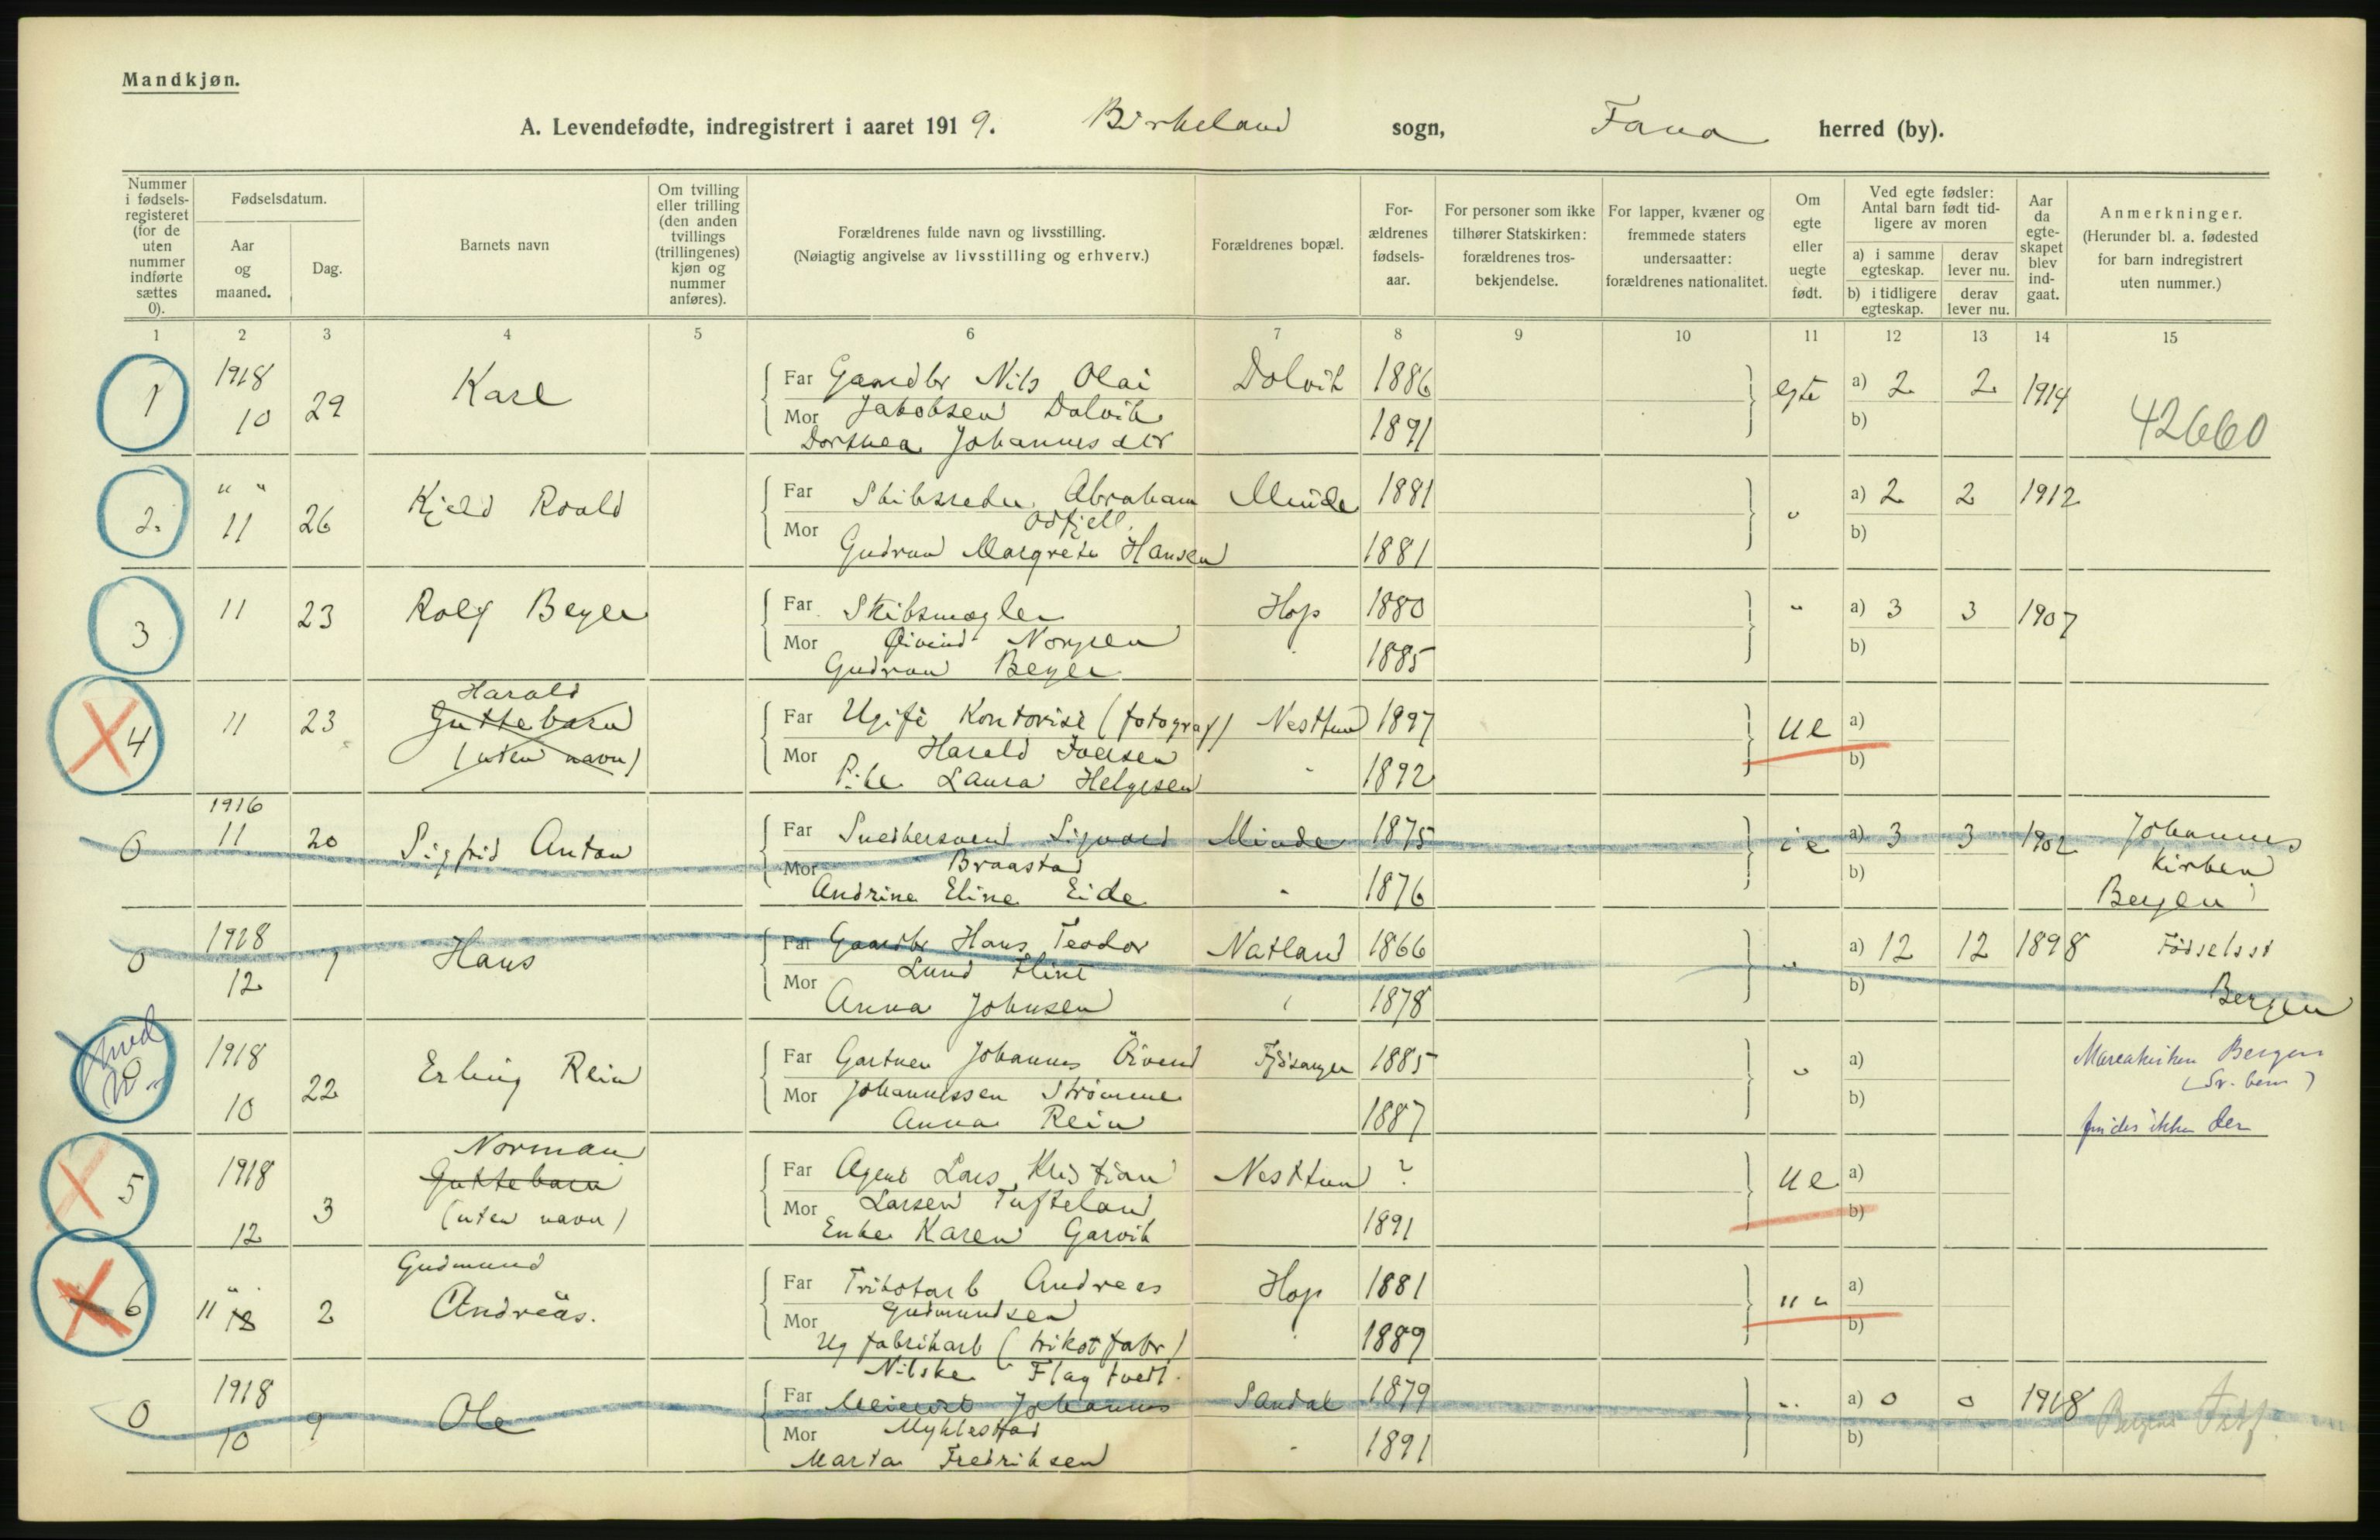 Mandkjøn.
A. Levendefødte, indregistrert i aaret 1919. Birkeland sogn, Fana herred (by).
Nummer i fødsels-registeret (for de uten nummer indførte sættes 0).
Fødselsdatum.
Aar og maaned.
Dag.
Barnets navn
Om tvilling eller trilling (den anden tvillings (trillingenes) kjøn og nummer anføres).
Forældrenes fulde navn og livsstilling.
(Nøiagtig angivelse av livsstilling og erhverv.)
Forældrenes bopæl.
For-ældrenes fødsels-aar.
For personer som ikke tilhører Statskirken: forældrenes tros-bekjendelse.
For lapper, kvæner og fremmede staters undersaatter: forældrenes nationalitet.
Om egte eller uegte født.
Ved egte fødsler: Antal barn født tid-ligere av moren
a) i samme egteskap. derav lever nu.
b) i tidligere egteskap. derav lever nu.
Aar da egte-skapet blev ind-gaat.
Anmerkninger.
(Herunder bl. a. fødested for barn indregistrert uten nummer.)
1 2 3 4 5 6 7 8 9 10 11 12 13 14 15
1 1918 10 29 Karl Far Gaardbr Nils Olai Dolvik 1886 egte a) 2 2 1914
Mor Jakobsen Dolvik b) 42660
Dorthea Johannesdtr 1891
2. " " 11 26 Kjeld Roald Far Skibsreder Abraham Minde 1881 " a) 2 2 1912
Odfjell
Mor Gudrun Margrete Hansen 1881 b)
3 11 23 Rolf Beyer Far Skibsmægler Hop 1880 " a) 3 3 1907
Mor Øivind Norgren b)
Gudrun Beyer 1885
Harald
4 11 23 Guttebarn Far Ugift Kontorist (fotograf) Nesttun 1897 ue a)
(uten navn) Mor Harald Iversen b)
Pike Laura Helgesen " 1892
0 1916 11 20 Sigfrid Anton Far Snedkersvend Sigvard Minde 1875 a) 3 3 1902 Johannes
Mor Braastad b) kirken
Andrine Eline Eide " 1876 Bergen
0 1918 12 1 Hans Far Gaardbr Hans Teodor Natland 1866 " a) 12 12 1898 Fødselsst
Mor Lund Flint b) Bergen
Anna Johnsen " 1878
0 1918 10 22 Erling Rein Far Gartner Johannes Øivend Fjøsanger 1885 " a) Mariakirken Bergen
med no
Mor Johannessen Strömme b)
Anna Rein 1887 findes ikke der
Norman
5 1918 12 3 Guttebarn Far Agent Lars Kristian Nesttun ? ue a)
(uten navn) Mor Larsen Tufteland b)
Enke Karen Garvik 1891
Gudmund
6 " 11 18 2 Andreas. Far Trikotarb Andreas Hop 1881 " " a)
Mor Gudmundsen b)
Ug fabrikarb (trikotfabr) " 1889
Nilske Flagtvedt
0 1918 10 9 Ole Far Johannes Sandal 1879 " a) 0 0 1918 Bergens
Mor Myklestad b)
Marta Fredriksen " 1891